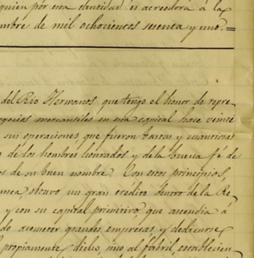 quien por esa cantidad es acreedora á la
mbre de mil ochocientos sesenta y uno.
del Rio Hermanos, que tengo el honor de repre-
negocios mercantiles en esta capital hace veinte
sus operaciones que fueron vastas y cuantiosas
de los hombres honrados y de la buena fe de
de su buen nombre. Con estos principios,
obtuvo un gran credito dentro de la Re
y con su capital primitivo que ascendia á
de acometer grandes empresas, y dedicarse
propiamente dicho, sino al fabril, establecien